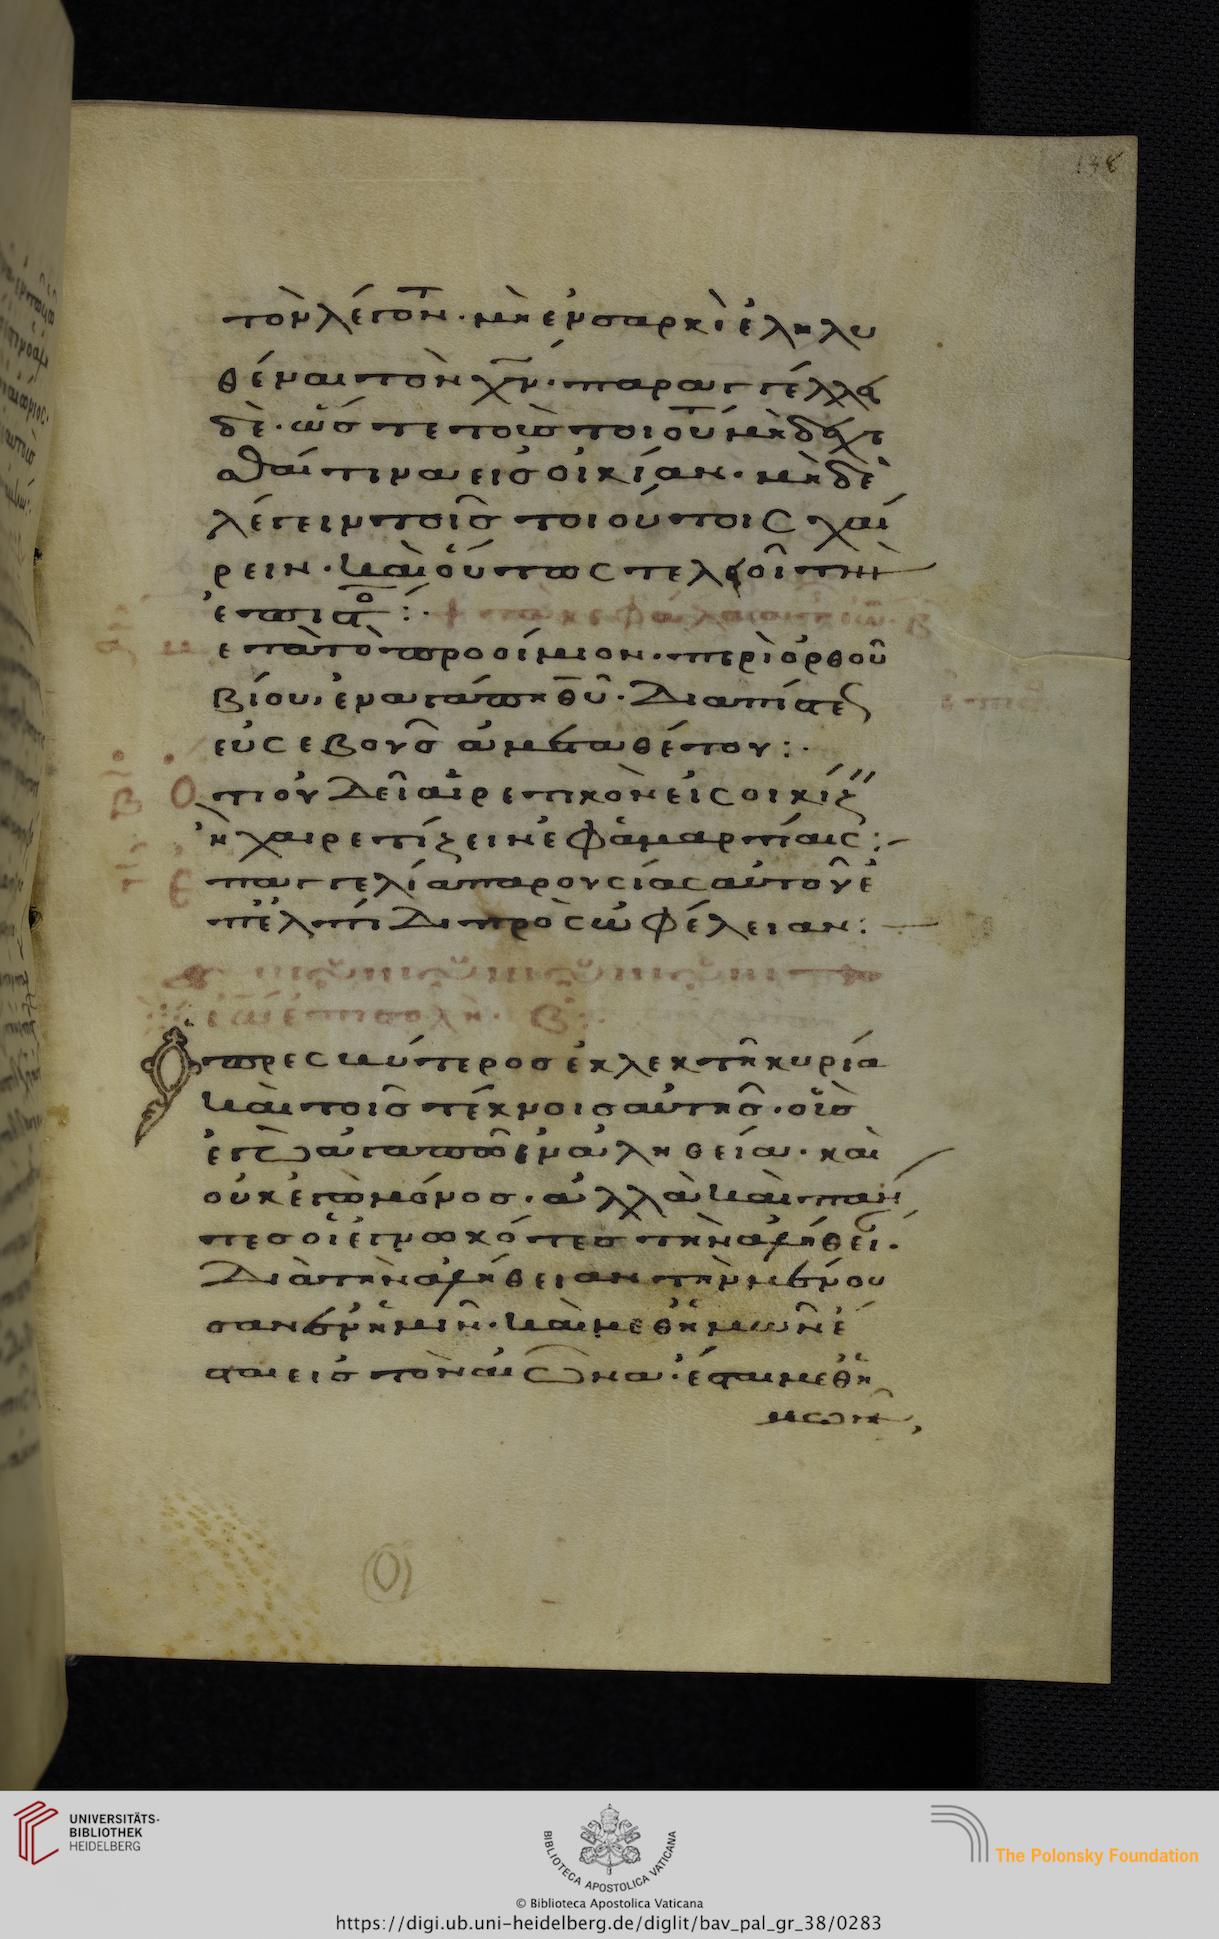 138
τὸν λέγοντ. μὴ ἐν σαρκὶ ἐληλυ
θέναι τὸν χν̅· παραγγέλλει
δὲ. ὥστε τοὺς τοιούτ μὴ δέχε
σθαί τινα εἰς οἰκίαν. μὴ δὲ
λέγειν τοῖς τοιούτοις χαί
ρειν. καὶ οὕτως τελειοῖ τὴν
ἐπιστο :·
τὰ κεφάλαια
μετὰ τὸ προοίμιον. περὶ ὀρθοῦ
βίου, ἐν ἀγάπη θυ̅. διὰ πίστεως
εὐσεβοῦς ἀμεταθέτου :·
Ὅτι οὐ δεῖ αἱρετικὸν εἰς οἰκίαν
ἢ χαιρετίζειν ἐφ ἁμαρτίαις :
Ἐπαγγελία παρουσίας αὐτοῦ ἐ
π ἐλπίδι πρὸς ὠφέλειαν :
ἐπιστολὴ. β :
Ὁ πρεσβύτερος ἐκλεκτῆ κυρία
καὶ τοῖς τέκνοις αὐτῆς. οὓς
ἐγὼ ἀγαπῶ ἐν ἀληθεία. καὶ
οὐκ ἐγὼ μόνος. ἀλλὰ καὶ πάν
τες οἱ ἐγνωκότες τὴν ἀλήθει.
διὰ τὴν ἀλήθειαν τὴν μένου
σαν ἐν ἡμῖν. καὶ μεθ ἡμῶν ἔ
σται εἰς τὸν αἰῶνα. ἔσται μεθ ἡ
μῶν,
UNIVERSITÄTS-
BIBLIOTHEK
HEIDELBERG
BIBLIOTECA APOSTOLICA VATICANA
The Polonsky Foundation
© Biblioteca Apostolica Vaticana
https://digi.ub.uni-heidelberg.de/diglit/bav_pal_gr_38/0283